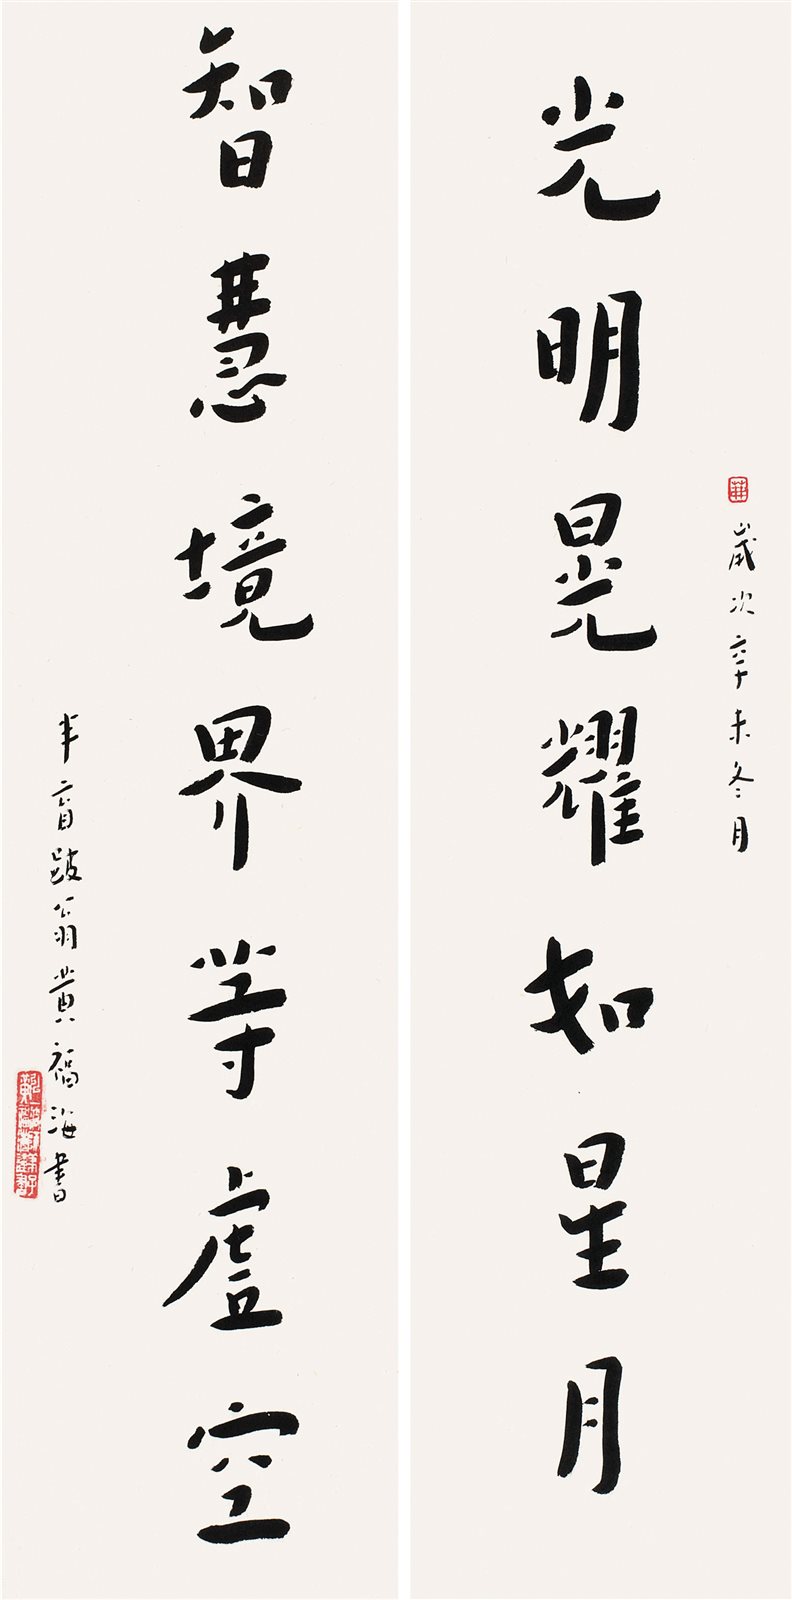 歲次辛未冬月
光明晃耀如星月
智慧境界等虛空
半盲跛翁黄福海書